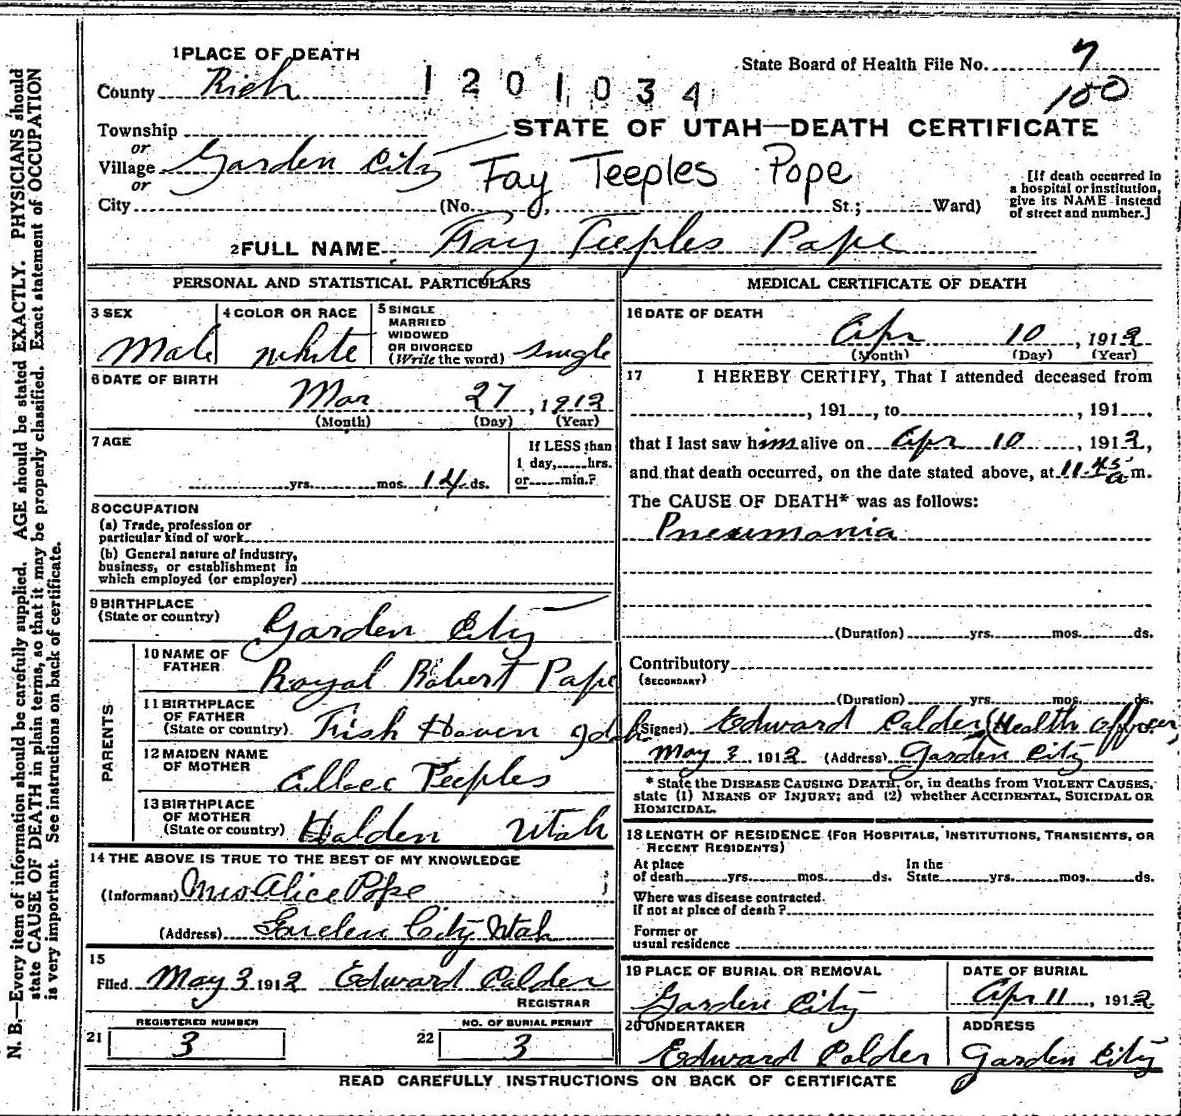 1 PLACE OF DEATH
County Rich
1201034
State Board of Health File No. 7
100
STATE OF UTAH—DEATH CERTIFICATE
Township
or
Village Garden City
or
City (No. , St.; Ward)
Fay Teeples Pope
[If death occurred in
a hospital or institution,
give its NAME instead
of street and number.]
2 FULL NAME Fay Teeples Pape
PERSONAL AND STATISTICAL PARTICULARS
3 SEX
Male
4 COLOR OR RACE
white
5 SINGLE
MARRIED
WIDOWED
OR DIVORCED
(Write the word) single
6 DATE OF BIRTH
Mar 27, 1912
(Month) (Day) (Year)
7 AGE
yrs. mos. 14 ds.
If LESS than
1 day, hrs.
or min.?
8 OCCUPATION
(a) Trade, profession or
particular kind of work
(b) General nature of industry,
business, or establishment in
which employed (or employer)
9 BIRTHPLACE
(State or country) Garden City
PARENTS
10 NAME OF
FATHER Royal Robert Pape
11 BIRTHPLACE
OF FATHER
(State or country) Fish Haven Idaho
12 MAIDEN NAME
OF MOTHER
Teeples
13 BIRTHPLACE
OF MOTHER
(State or country) Holden Utah
14 THE ABOVE IS TRUE TO THE BEST OF MY KNOWLEDGE
(Informant) Mrs Alice Pope
(Address) Garden City Utah
15
Filed May 3 1912 Edward Calder
REGISTRAR
21 REGISTERED NUMBER
3
22 NO. OF BURIAL PERMIT
3
MEDICAL CERTIFICATE OF DEATH
16 DATE OF DEATH
Apr 10, 1912
(Month) (Day) (Year)
17 I HEREBY CERTIFY, That I attended deceased from
, 191 , to , 191 ,
that I last saw him alive on Apr 10, 1912,
and that death occurred, on the date stated above, at 11.45 a m.
The CAUSE OF DEATH* was as follows:
Pneumonia
(Duration) yrs. mos. ds.
Contributory
(SECONDARY)
(Duration) yrs. mos. ds.
(Signed) Edward Calder (Health Officer)
May 3 1912 (Address) Garden City
* State the DISEASE CAUSING DEATH, or, in deaths from VIOLENT CAUSES,
state (1) MEANS OF INJURY; and (2) whether ACCIDENTAL, SUICIDAL OR
HOMICIDAL.
18 LENGTH OF RESIDENCE (FOR HOSPITALS, INSTITUTIONS, TRANSIENTS, OR
RECENT RESIDENTS)
At place
of death yrs. mos. ds.
In the
State yrs. mos. ds.
Where was disease contracted.
if not at place of death?
Former or
usual residence
19 PLACE OF BURIAL OR REMOVAL
Garden City
DATE OF BURIAL
Apr 11, 1912
20 UNDERTAKER
Edward Calder
ADDRESS
Garden City
READ CAREFULLY INSTRUCTIONS ON BACK OF CERTIFICATE
N. B.—Every item of information should be carefully supplied. AGE should be stated EXACTLY. PHYSICIANS should
state CAUSE OF DEATH in plain terms, so that it may be properly classified. Exact statement of OCCUPATION
is very important. See instructions on back of certificate.